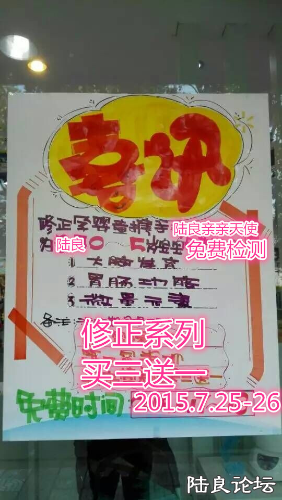 喜讯
修正孕婴童携手陆良亲亲天使
为陆良0～5
免费检测
1 大脑发育
2 胃肠功能
3 微量元素
修正系列
买三送一
免费时间 2015.7.25-26
陆良论坛